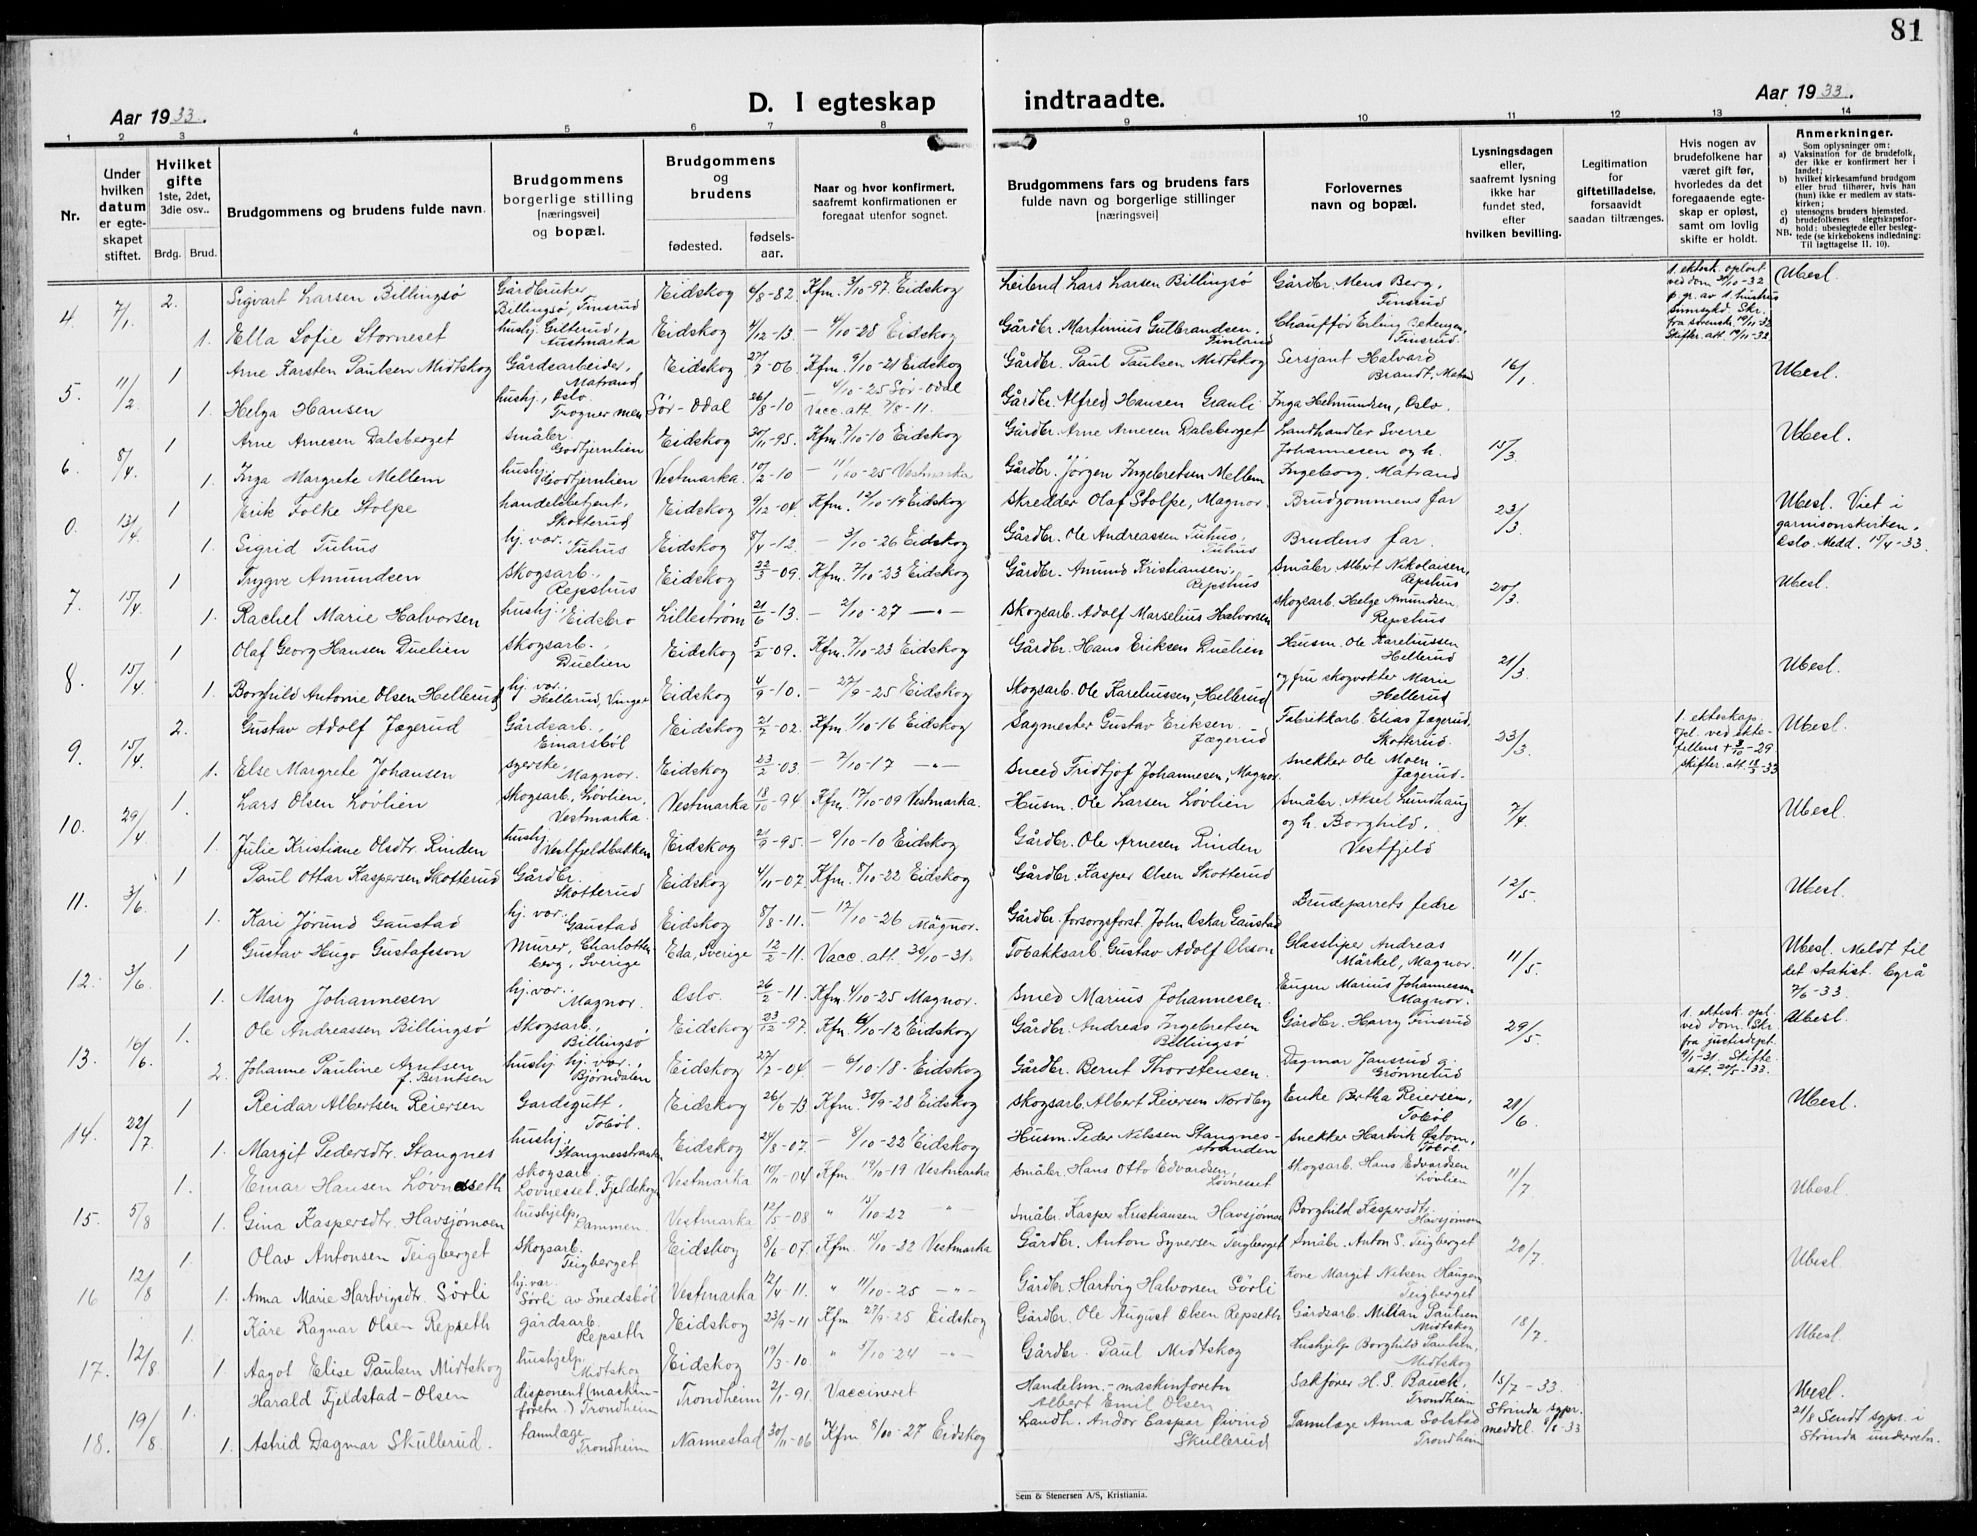 81
Aar 1933.
D. I egteskap indtraadte.
Aar 1933.
1 2 3 4 5 6 7 8 9 10 11 12 13 14
Nr.
Under hvilken datum er egteskapet stiftet.
Hvilket gifte 1ste, 2det, 3die osv..
Brdg. Brud.
Brudgommens og brudens fulde navn.
Brudgommens borgerlige stilling [næringsvei] og bopæl.
Brudgommens og brudens
fødested. fødsels-aar.
Naar og hvor konfirmert, saafremt konfirmationen er foregaat utenfor sognet.
Brudgommens fars og brudens fars fulde navn og borgerlige stillinger [næringsvei]
Forlovernes navn og bopæl.
Lysningsdagen eller, saafremt lysning ikke har fundet sted, efter hvilken bevilling.
Legitimation for giftetilladelse, forsaavidt saadan tiltrænges.
Hvis nogen av brudefolkene har været gift før, hvorledes da det foregaaende egteskap er opløst, samt om lovlig skifte er holdt.
Anmerkninger.
Som oplysninger om:
a) Vaksination for de brudefolk, der ikke er konfirmert her i landet;
b) hvilket kirkesamfund brudgom eller brud tilhører, hvis han (hun) ikke er medlem av statskirken;
c) utensogns bruders hjemsted.
d) brudefolkenes slegtskapsforhold: ubeslegtede eller beslegtede (se kirkebokens indledning:
NB. Til iagttagelse II. 10).
4. 7/1. 2. Sigvart Larsen Billingsø Gårdbruker Billingsø, Finsrud Eidskog 4/8-82. Kfm. 3/10-97 Eidskog Leilend Lars Larsen Billingsø Gårdbr. Mens Berg, Finsrud 1. ektesk. opløst ved dom 31/10-32 p. gr. av 1. hustrus sinnsykd. Skr. Ubesl.
1. Ella Sofie Storneset hushj. Gilterud, Austmarka Eidskog 4/12-13. – 4/10-28 Eidskog Gårdbr. Martinius Gulbrandsen, Finland Chauffør Erling Finsrud. Skifter. att. 19/11-32
5. 11/2 1 Arne Karsten Paulsen Midtskog Gårdsarbeider, Matrand Eidskog 27/2-06. Kfm. 9/10-21 Eidskog Gårdbr. Paul Paulsen Midtskog Sersjant Halvard Brandt, Matrand 16/1. Ubesl.
1. Helga Hansen hushj., Oslo. Frogner men Sør-Odal 26/8-10 – 4/10-25 Sør-Odal Vacc. att. 7/8-11. Gårdbr. Alfred Hansen Grauli Inga Helmundsen, Oslo.
6. 8/4. 1 Arne Arnesen Dalsberget småbr. Godtjernlien Eidskog 30/11-95. Kfm. 2/10-10 Eidskog Gårdbr. Arne Arnesen Dalsberget Landhandler Sverre Johannesen og h. 15/3. Ubesl.
1. Inga Margrete Mellem hushj. Godtjernlien Vestmarka 10/2-10 – 11/10-25 Vestmarka Gårdbr. Jørgen Ingebretsen Mellem Ingeborg, Matrand
0. 13/4. 1 Erik Folke Stolpe handelsbetjent, Skotterud Eidskog 9/12-04. Kfm. 12/10-19 Eidskog Skredder Olaf Stolpe, Magnor. Brudgommens far 23/3. Ubesl. Viet i garnisonskirken, Oslo. Medd. 15/4-33.
1. Sigrid Tuhus hj. vær. Tuhus Eidskog 8/4-12. – 3/10-26 Eidskog Gårdbr. Ole Andreassen Tuhus, Tuhus Brudens far.
7. 15/4. 1 Trygve Amundsen Skogsarb., Repshus Eidskog 22/3-09. Kfm. 7/10-23 Eidskog Gårdbr. Amund Kristiansen, Repshus Småbr. Albert Nikolaisen, Repshus 20/3. Ubesl.
1. Rachel Marie Halvorsen hushj. Eidsbro Lillestrøm 21/6-13. – 2/10-27 –"– Skogsarb. Adolf Marselius Halvorsen Skogsarb. Helge Amundsen, Repshus
8. 15/4. 1 Olaf Georg Hansen Duelien Skogsarb., Duelien Eidskog 5/2-09. Kfm. 7/10-23 Eidskog Gårdbr. Hans Eriksen Duelien Husm. Ole Karelussen Hellerud 21/3. Ubesl.
1. Borghild Antonie Olsen Hellerud hj. vær. Hellerud, Vinger Eidskog 4/9-10. – 27/9-25 Eidskog Skogsarb. Ole Karelussen, Hellerud og fru skogvokter Marie Hellerud
9. 15/4. 2. Gustav Adolf Jægerud Gårdsarb., Emarsbøl Eidskog 21/2-02. Kfm. 1/10-16 Eidskog Sagmester Gustav Eriksen. Jægerud Fabrikkarb. Elias Jægerud, Skotterud. 23/3. 1. ekteskap opl. ved ektefellens + 3/10-29 Skifter. att. 18/3-33 Ubesl.
1. Else Margrete Johansen syerske, Magnor. Eidskog 23/2-03. – 7/10-17 –"– Smed Fridtjof Johannesen, Magnor. Snekker Ole Moen. Jægerud.
10. 29/4 1. Lars Olsen Løvlien Skogsarb., Løvlien, Vestmarka. Vestmarka 18/10-94 Kfm. 17/10-09 Vestmarka. Husm. Ole Larsen Løvlien Småbr. Aksel Lundhaug og h. Borghild. 7/4. Ubesl.
1. Julie Kristiane Olsdtr. Rinden hushj. Vestfjeldbakken Eidskog 21/9-95. – 9/10-10 Eidskog Gårdbr. Ole Arnesen Rinden Vestfjeld
11. 3/6. 1 Paul Ottar Kaspersen Skotterud Gårdbr. Skotterud Eidskog 4/11-07. Kfm. 8/10-22 Eidskog Gårdbr. Kasper Olsen Skotterud Brudeparrets fedre 12/5. Ubesl.
1. Kari Jørund Gaustad hj. vær. Gaustad Eidskog 8/8-11. – 17/10-26 Magnor. Gårdbr. forsorgsforst. John Oskar Gaustad
12. 3/6. 1 Gustav Hugo Gustafsson Murer, Charlottenberg, Sverige Eda, Sverige 12/2-11. Vacc. att. 30/10-31. Tobakksarb. Gustav Adolf Olsson Glassliper Andreas Märkel, Magnor. 11/5. Ubesl. Meldt til det statist. byrå 7/6-33.
1. Mary Johannesen hj. vær. Magnor. Oslo. 26/2-11. Kfm. 4/10-25 Magnor. Smed Marius Johannesen. Eugen Marius Johannessen Magnor.
13. 16/6. 1. Ole Andreassen Billingsø Skogsarb., Billingsø Eidskog 23/12-97. Kfm. 6/10-12 Eidskog Gårdbr. Andreas Ingebretsen Billingsø Gårdbr. Harry Finsrud 29/5. 1. ektesk. opl. ved dom. Skr. fra justisdept. 9/1-31. Skifte. att. 20/5-33. Ubesl.
2. Johanne Pauline Arntsen f. Berntsen hushj. hj. vær. Bjørndalen Eidskog 27/2-04. – 6/10-18. Eidskog Gårdbr. Bernt Thorstensen. Dagmar Jansrud Grønnerud
14. 22/7. 1 Reidar Albertsen Reiersen Gardsgutt. Tobøl. Eidskog 26/6-13 Kfm. 30/9-28 Eidskog Skogsarb. Albert Reiersen Nordby Enke Bertha Reiersen, Tobøl 28/6 Ubesl.
1. Margit Pedersdtr. Stangnes hushj. Stangnesstranden Eidskog 24/8-07. – 8/10-22 Eidskog Husm. Peder Nilssen Stangnesstranden Snekker Hartvik Østom, Tobøl.
15. 5/8 1. Einar Hansen Løvnesseth Skogsarb. Løvnesset, Fjeldskog Vestmarka 10/11-04 Kfm. 19/10-19 Vestmarka Småbr. Hans Otto Edvardsen, Løvnesset Skogsarb. Hans Edvardsen Løvlien 11/7. Ubesl.
1. Gina Kaspersdtr. Havsjømoen hushjelp, Dammen. Vestmarka 12/5-08 " 15/10-22 –"– Småbr. Kasper Kristiansen Havsjømoen Borghild Kaspersdtr. Havsjømoen
16 12/8 1. Olav Antonsen Teigberget Skogsarb. Teigberget Eidskog 8/6-07. Kfm. 15/10-22 Vestmarka Gårdbr. Anton Syversen Teigberget Småbr. Anton S. Teigberget 20/7. Ubesl.
1. Anna Marie Hartvigsdtr. Sörli hj. vær. Sörli av Snedsbøl Vestmarka 12/4-11. " 11/10-25 –"– Gårdbr. Hartvig Halvorsen Sörli Kone Margit Nilsen Haugen Teigberget
17. 12/8 1. Kåre Ragnar Olsen Repseth gårdsarb. Repseth Eidskog 23/9-11 Kfm 27/9-25 Eidskog Gårdbr. Ole August Olsen Repseth Gårdsarb. Millan Paulsen Midtskog 18/7. Ubesl.
1 Aagot Elise Paulsen Midtskog hushjelp Midtskog Eidskog 17/3-10. " 5/10-24 –"– Gårdbr. Paul Midtskog Hushjelp Borghild Paulsen, Midtskog
18. 19/8. 1. Harald Fjeldstad-Olsen disponent (maskinforetn.) Trondheim Trondheim 2/1-91. Vaccineret Handelsm.-maskinforetn Albert Emil Olsen Sakfører H. S. Bauck, Trondheim 15/7-33. Strinda sypr. meddel. 8/8-33 Ubesl. 21/8 Sendt sypr. i Strinda underretn.
1. Astrid Dagmar Skullerud. tannlæge Trondheim Nannestad 30/11-06 Kfm 8/10-27 Eidskog Landh. Andor Caspar Øivind Skullerud Tannlæge Anna Solstad Trondheim
Sem & Stenersen A/S, Kristiania.